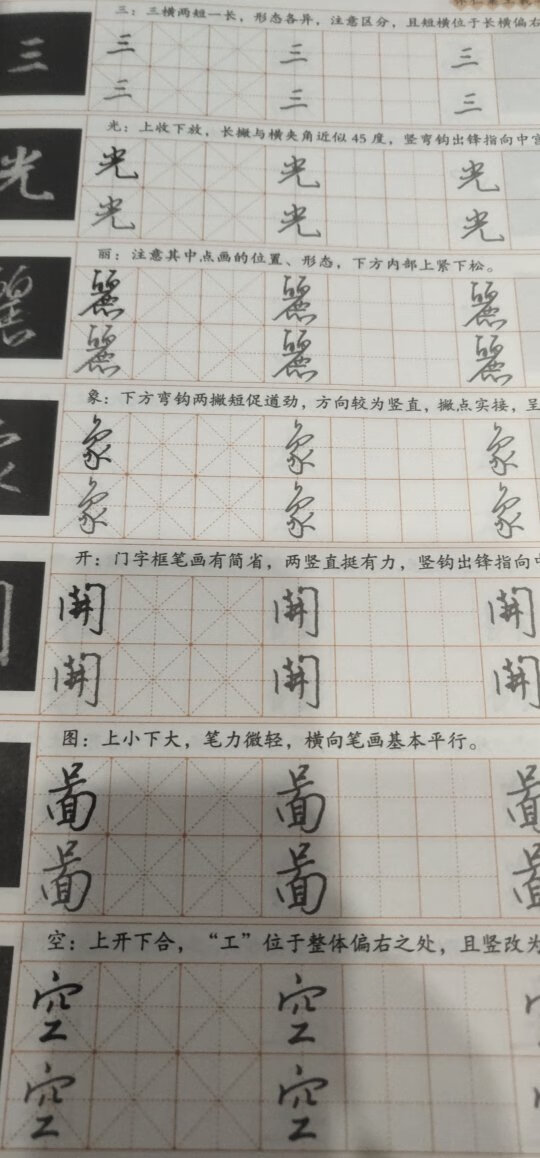 三
三：三横两短一长，形态各异，注意区分，且短横位于长横偏右
三 三 三
三 三 三
光
光：上收下放，长撇与横夹角近似 45 度，竖弯钩出锋指向中宫
光 光 光
光 光 光
丽：注意其中点画的位置、形态，下方内部上紧下松。
麗 麗 麗
麗 麗 麗
象：下方弯钩两撇短促遒劲，方向较为竖直，撇点实接，呈
象 象 象
象 象 象
开：门字框笔画有简省，两竖直挺有力，竖钩出锋指向中
開 開 開
開 開 開
图：上小下大，笔力微轻，横向笔画基本平行。
啚 啚 啚
啚 啚 啚
空：上开下合，“工”位于整体偏右之处，且竖改为
空 空
空 空